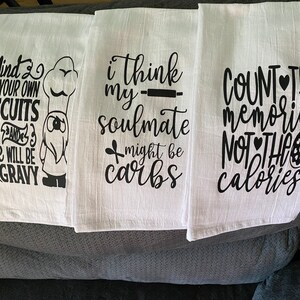 mind
YOUR OWN
CUITS
AND
WILL BE
GRAVY
i think
my
soulmate
might be
carbs
COUNT
memori
NOT THE
calories